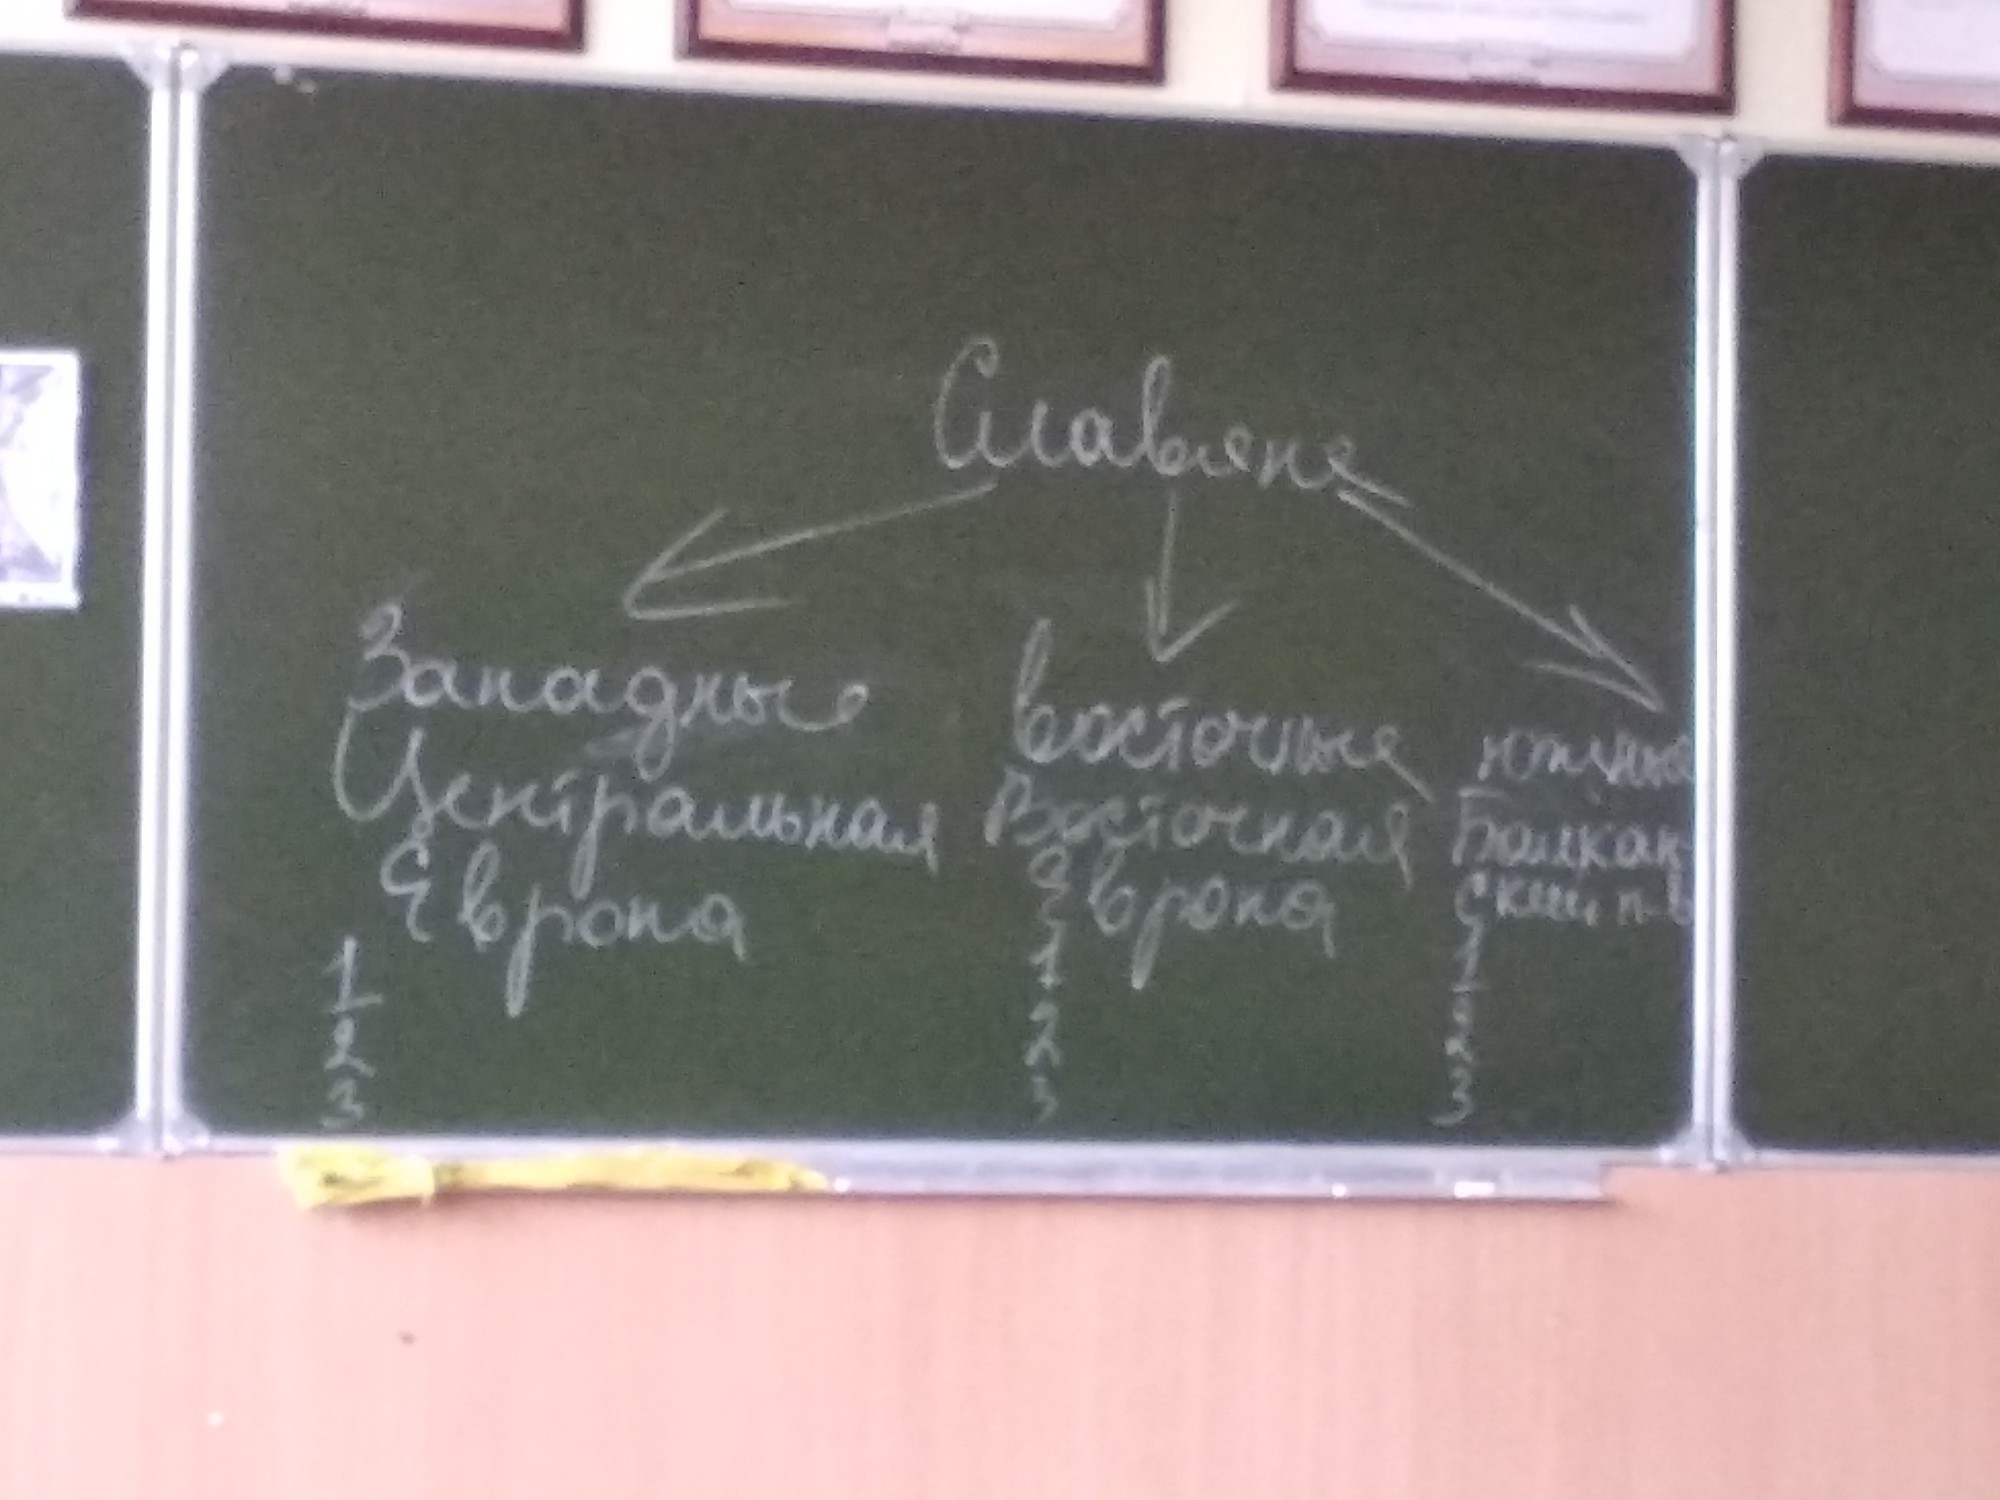 Славяне
Западные
Центральная
Европа
1
2
3
Восточные
Восточная
Европа
1
2
3
южные
Балкан-
ский п-в
1
2
3